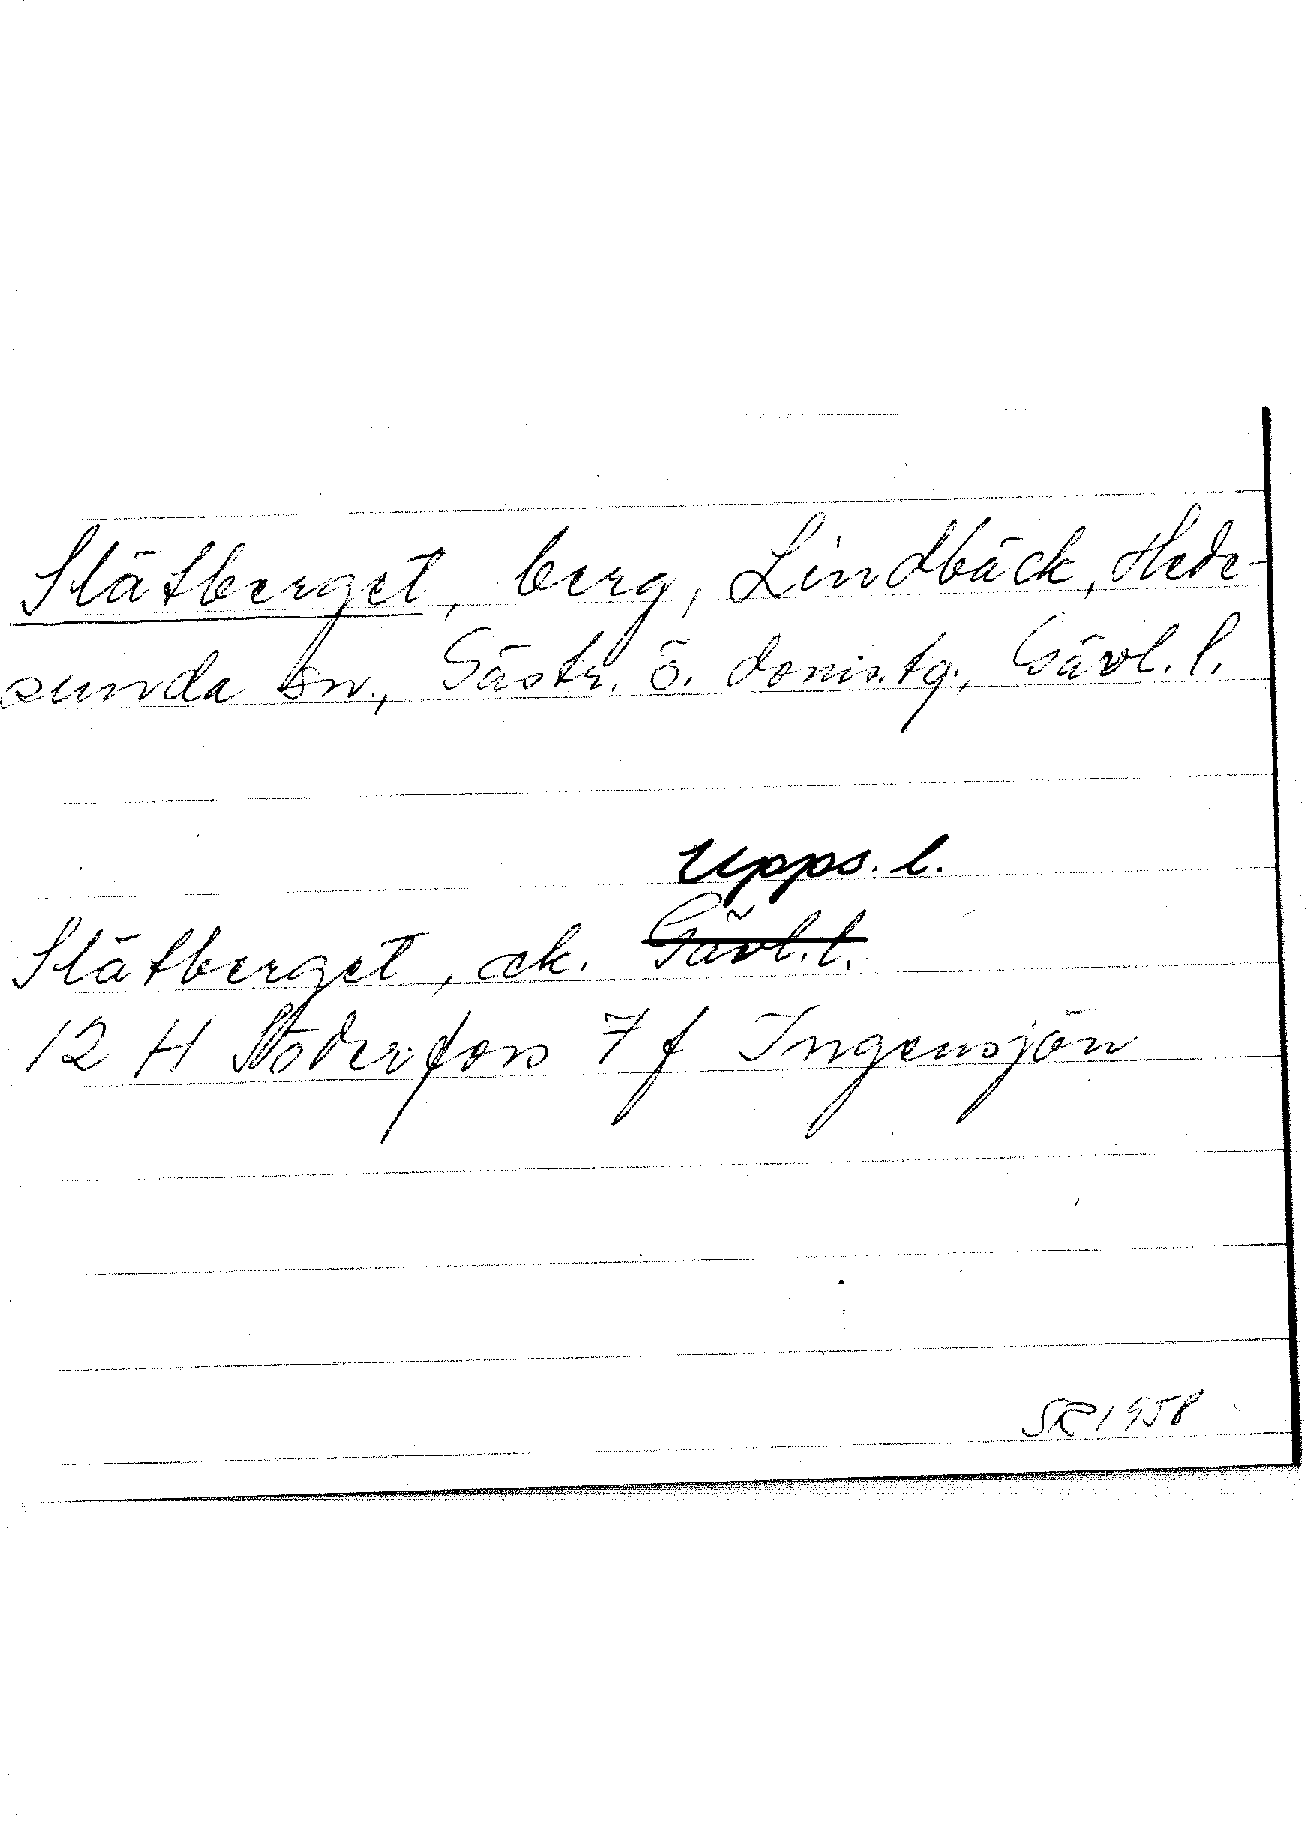 Slätberget, berg, Lindbäck, Hede-
sunda sn., Gästr. ö. doms.tg., Gävl. l.
Upps. l.
Slätberget, ek. Gävl. l.
12 H Söderfors 7 f Ingensjön
SR 1958